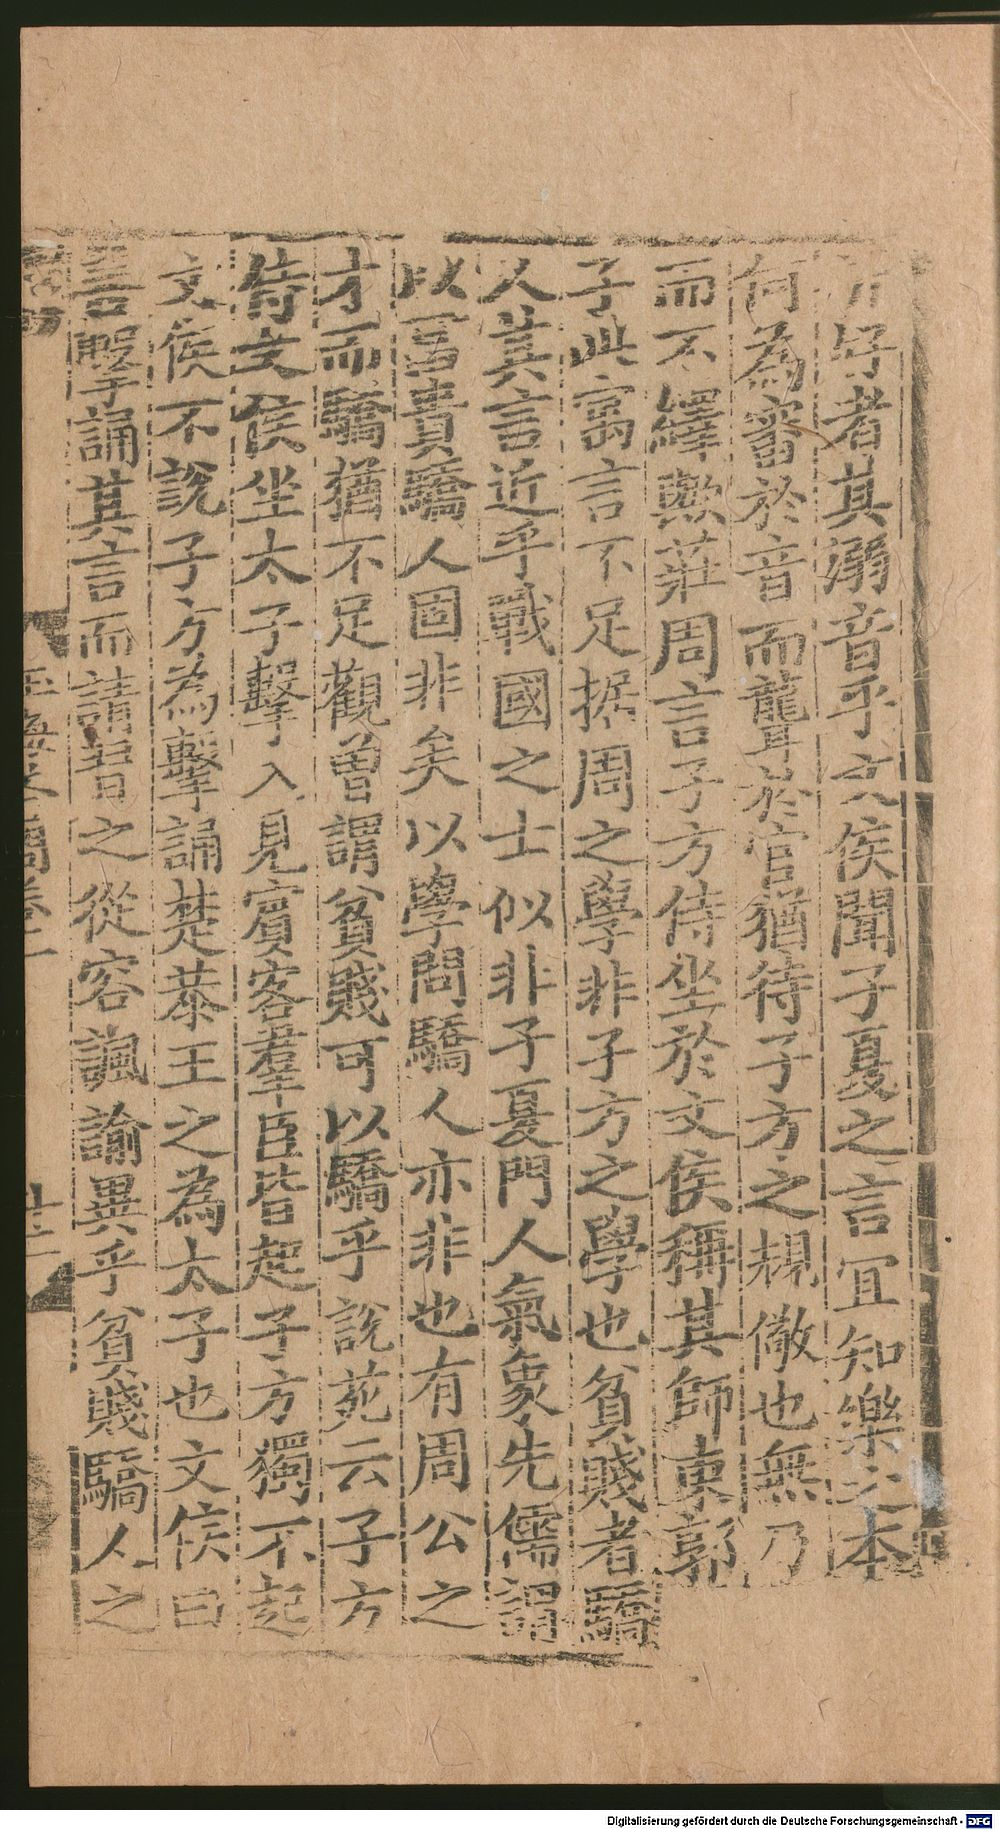 所好者其溺音乎文侯聞子夏之言宜知樂之本
何為審於音而聾於官猶待子方之規儆也無乃
而不繹歟莊周言子方侍坐於文侯稱其師東郭
子此寓言不足据周之學非子方之學也貧賤者驕
人其言近乎戰國之士似非子夏門人氣象先儒謂
以富貴驕人固非矣以學問驕人亦非也有周公之
才而驕猶不足觀曾謂貧賤可以驕乎說苑云子方
侍文侯坐太子擊入見賓客羣臣皆起子方獨不起
文侯不說子方為擊誦楚恭王之為太子也文侯曰
善擊誦其言而請習之從容諷諭異乎貧賤驕人之
玉海 卷二
廿二
Digitalisierung gefördert durch die Deutsche Forschungsgemeinschaft - DFG